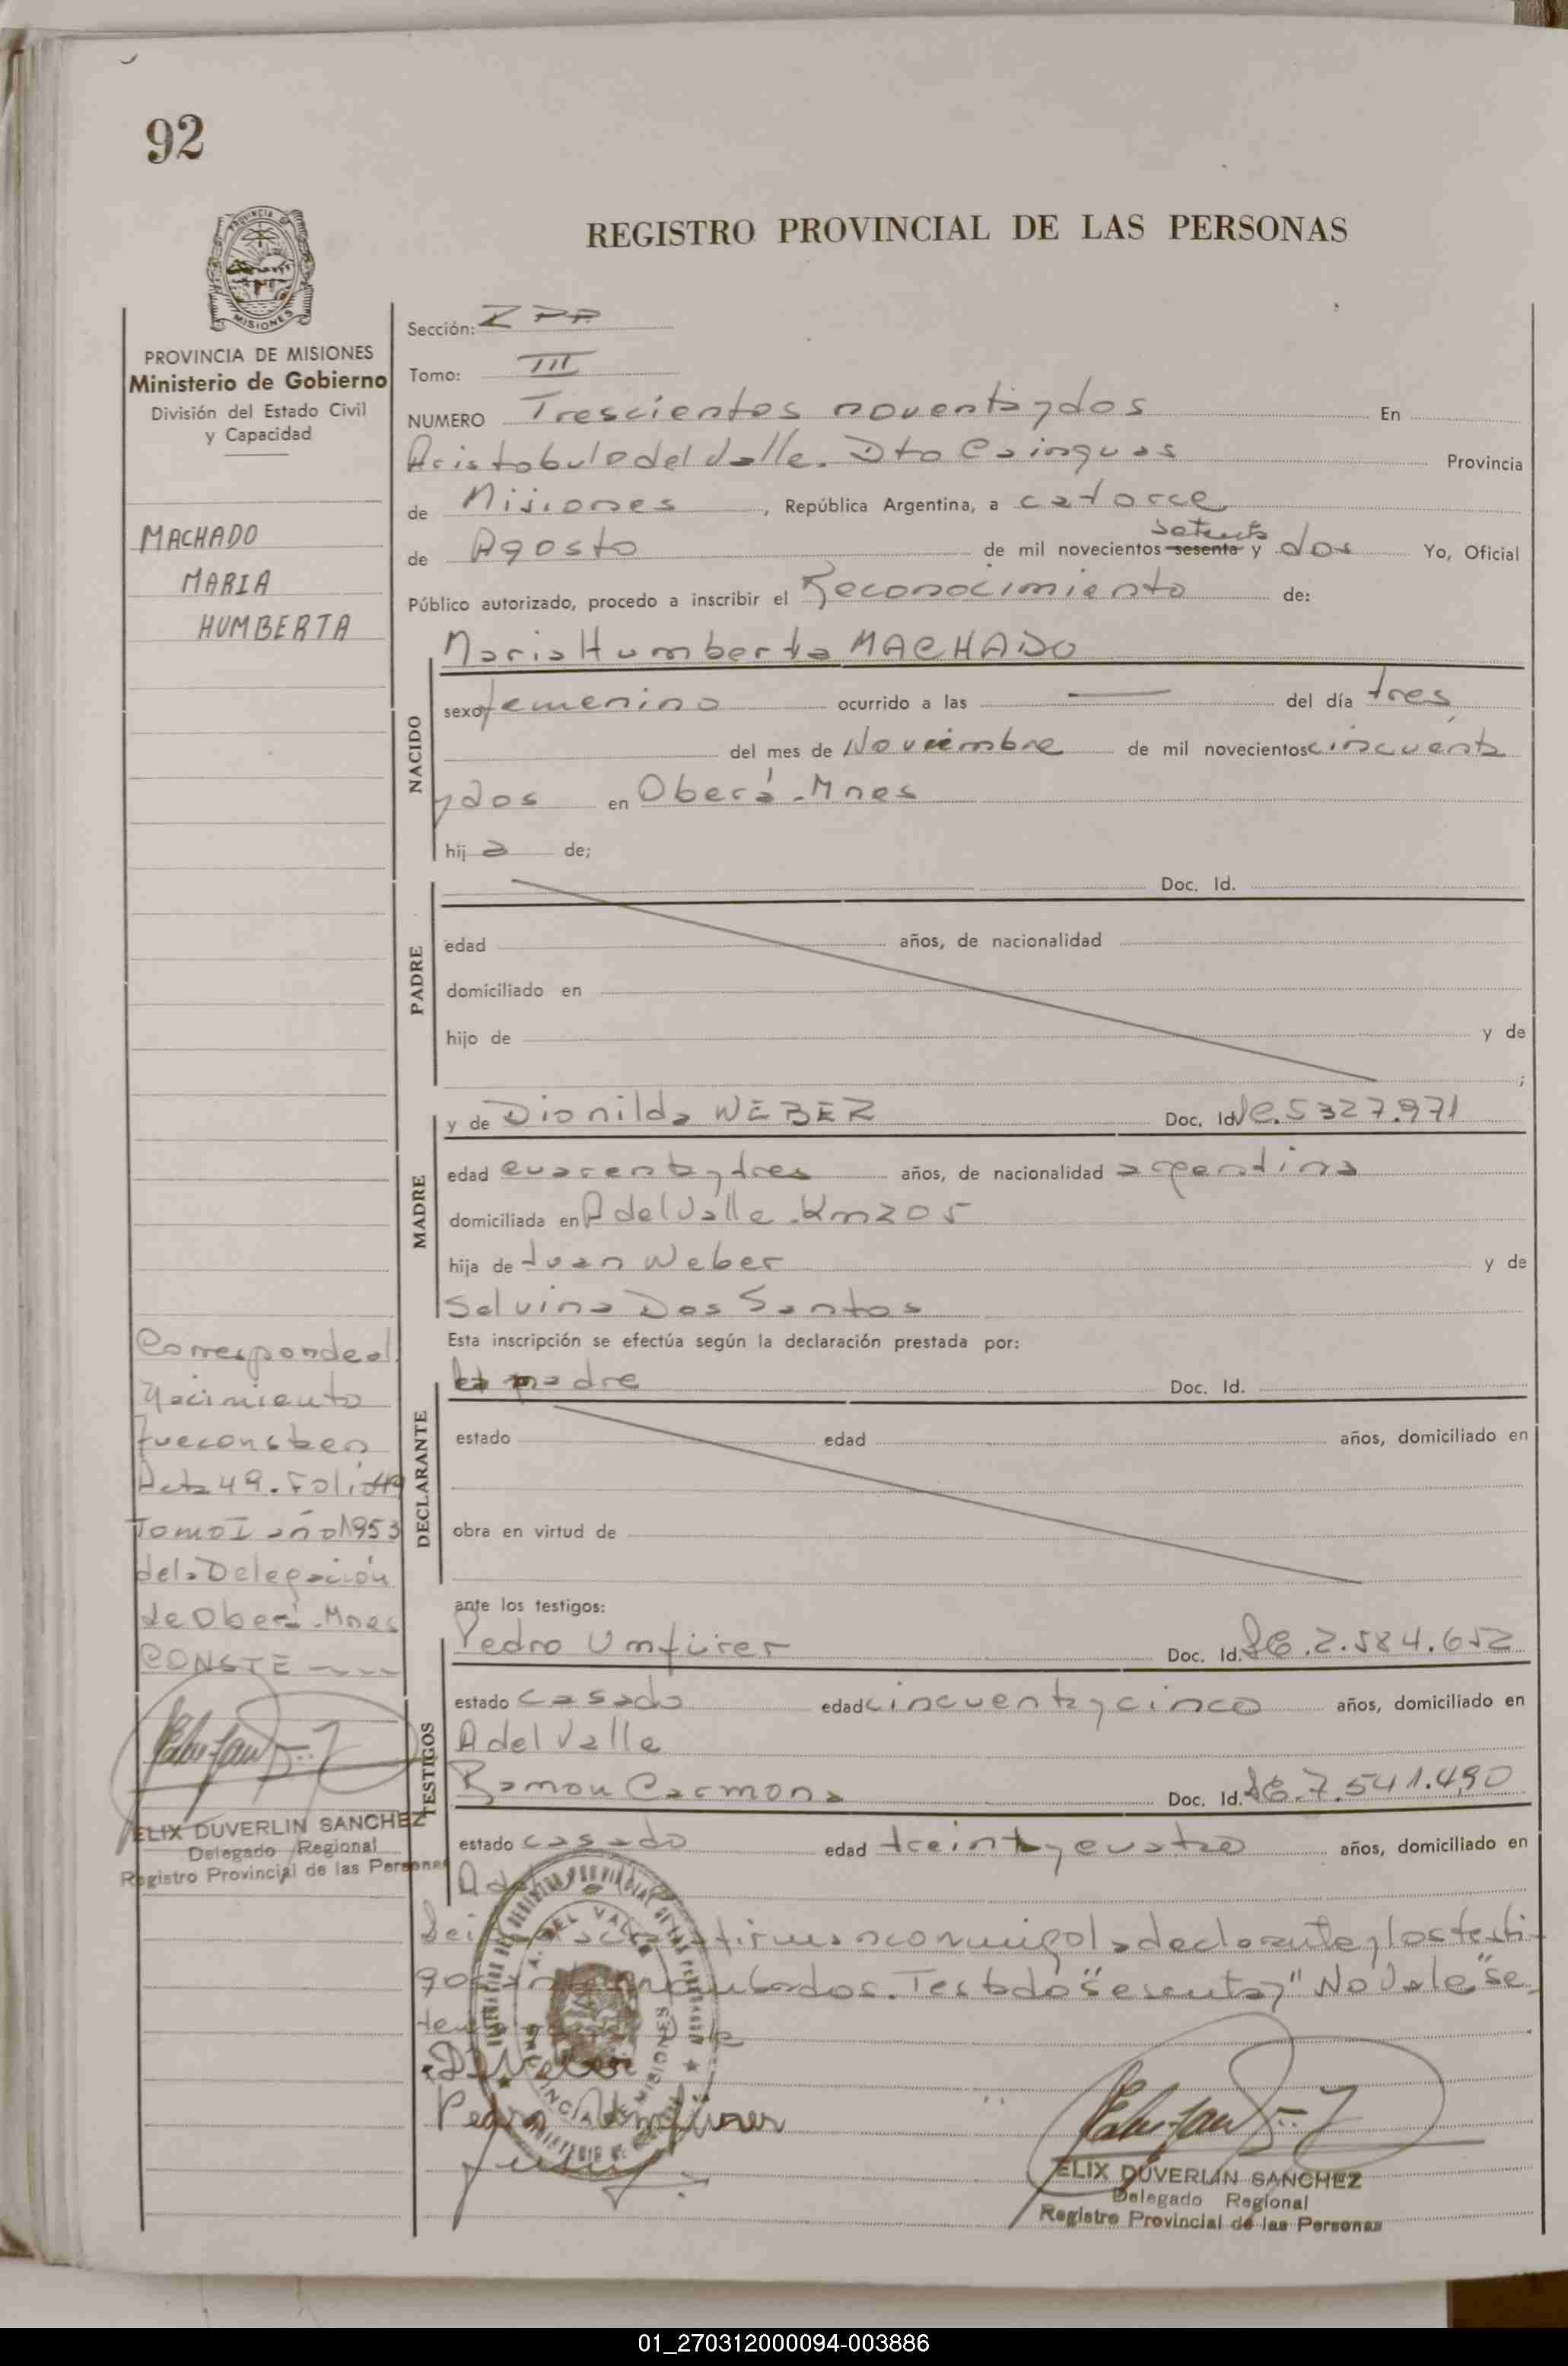 92
PROVINCIA DE MISIONES
REGISTRO PROVINCIAL DE LAS PERSONAS
PROVINCIA DE MISIONES
Ministerio de Gobierno
División del Estado Civil
y Capacidad
MACHADO
MARIA
HUMBERTA
Sección:
Tomo: III
NUMERO Trescientos noventa y dos En
Aristobulo del Valle. Dto Cainguas Provincia
de Misiones, República Argentina, a catorce
setenta
de Agosto de mil novecientos sesenta y dos Yo, Oficial
Público autorizado, procedo a inscribir el Reconocimiento de:
Maria Humberta MACHADO
NACIDO
sexo femenino ocurrido a las — del día tres
del mes de Noviembre de mil novecientos cincuenta
y dos en Oberá - Mnes
hij a de;
PADRE
Doc. Id.
edad años, de nacionalidad
domiciliado en
hijo de y de
;
MADRE
y de Dionilda WEBER Doc. Id. LC. 5327.971
edad cuarenta y tres años, de nacionalidad argentina
domiciliada en A del Valle. Km 205
hija de Juan Weber y de
Selvina Dos Santos
Esta inscripción se efectúa según la declaración prestada por:
DECLARANTE
la madre Doc. Id.
estado edad años, domiciliado en
obra en virtud de
ante los testigos:
TESTIGOS
Pedro Umfürer Doc. Id. LE. 2.584.652
estado casado edad cincuenta y cinco años, domiciliado en
A del Valle
Ramon Carmona Doc. Id. LE. 7.541.490
estado casado edad treinta y cuatro años, domiciliado en
firman conmigo la declarante y los testi-
gos Testado "sesenta y" No Vale "se
Pedro Umfürer
Corresponde al
Nacimiento
que consta en
Acta 49. Folio 49
Tomo I año 1953
de la Delegación
de Oberá - Mnes
CONSTE
ELIX DUVERLIN SANCHEZ
Delegado Regional
Registro Provincial de las Personas
ELIX DUVERLIN SANCHEZ
Delegado Regional
Registro Provincial de las Personas
01_270312000094-003886